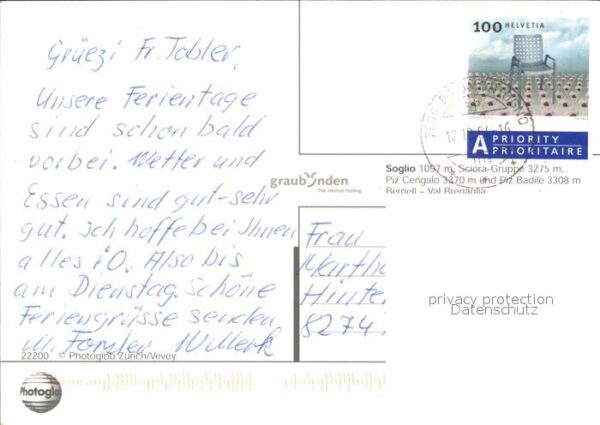 Grüezi Fr. Tobler,
Unsere Ferientage
sind schon bald
vorbei. Wetter und
Essen sind gut-sehr
gut. Ich hoffe bei Ihnen
alles i.O. Also bis
am Dienstag. Schöne
Feriengrüsse senden
22200 © Photoglob Zürich/Vevey
Photoglob
graubünden
The Holiday Feeling
100 HELVETIA
A PRIORITY
PRIORITAIRE
Soglio 1097 m, Sciora-Gruppe 3275 m,
Piz Cengalo 3370 m und Piz Badile 3308 m
Bergell – Val Bregaglia
Frau
Martha
Hinter
8274
privacy protection
Datenschutz